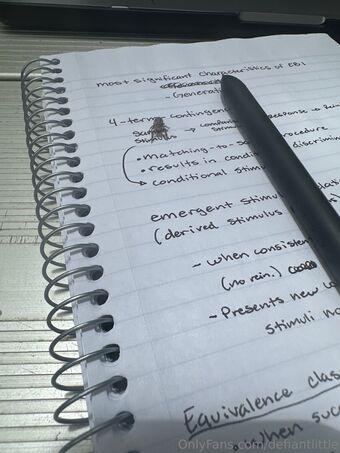 most significant characteristics of EBI
- Generati
4-term contingen
response → Rein
• matching-to-sa procedure
• results in condi discrimin
conditional stimu
emergent stimu
(derived stimulus
- when consisten
(no rein)
- Presents new
stimuli no
Equivalence clas
when suc
OnlyFans.com/defiantlittle